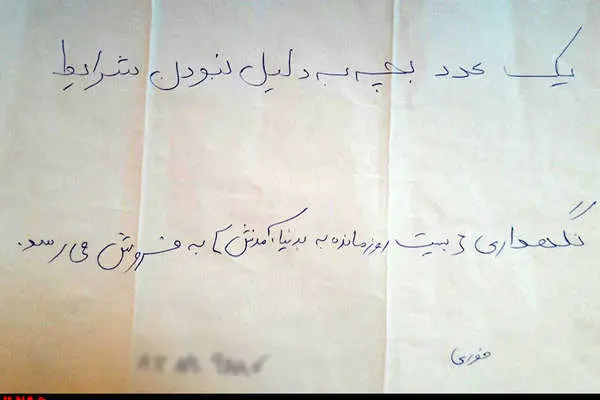 یک عدد بچه به دلیل نبودن شرایط
نگهداری (بیست روز مانده به بدنیا آمدنش) به فروش می رسد.
فوری